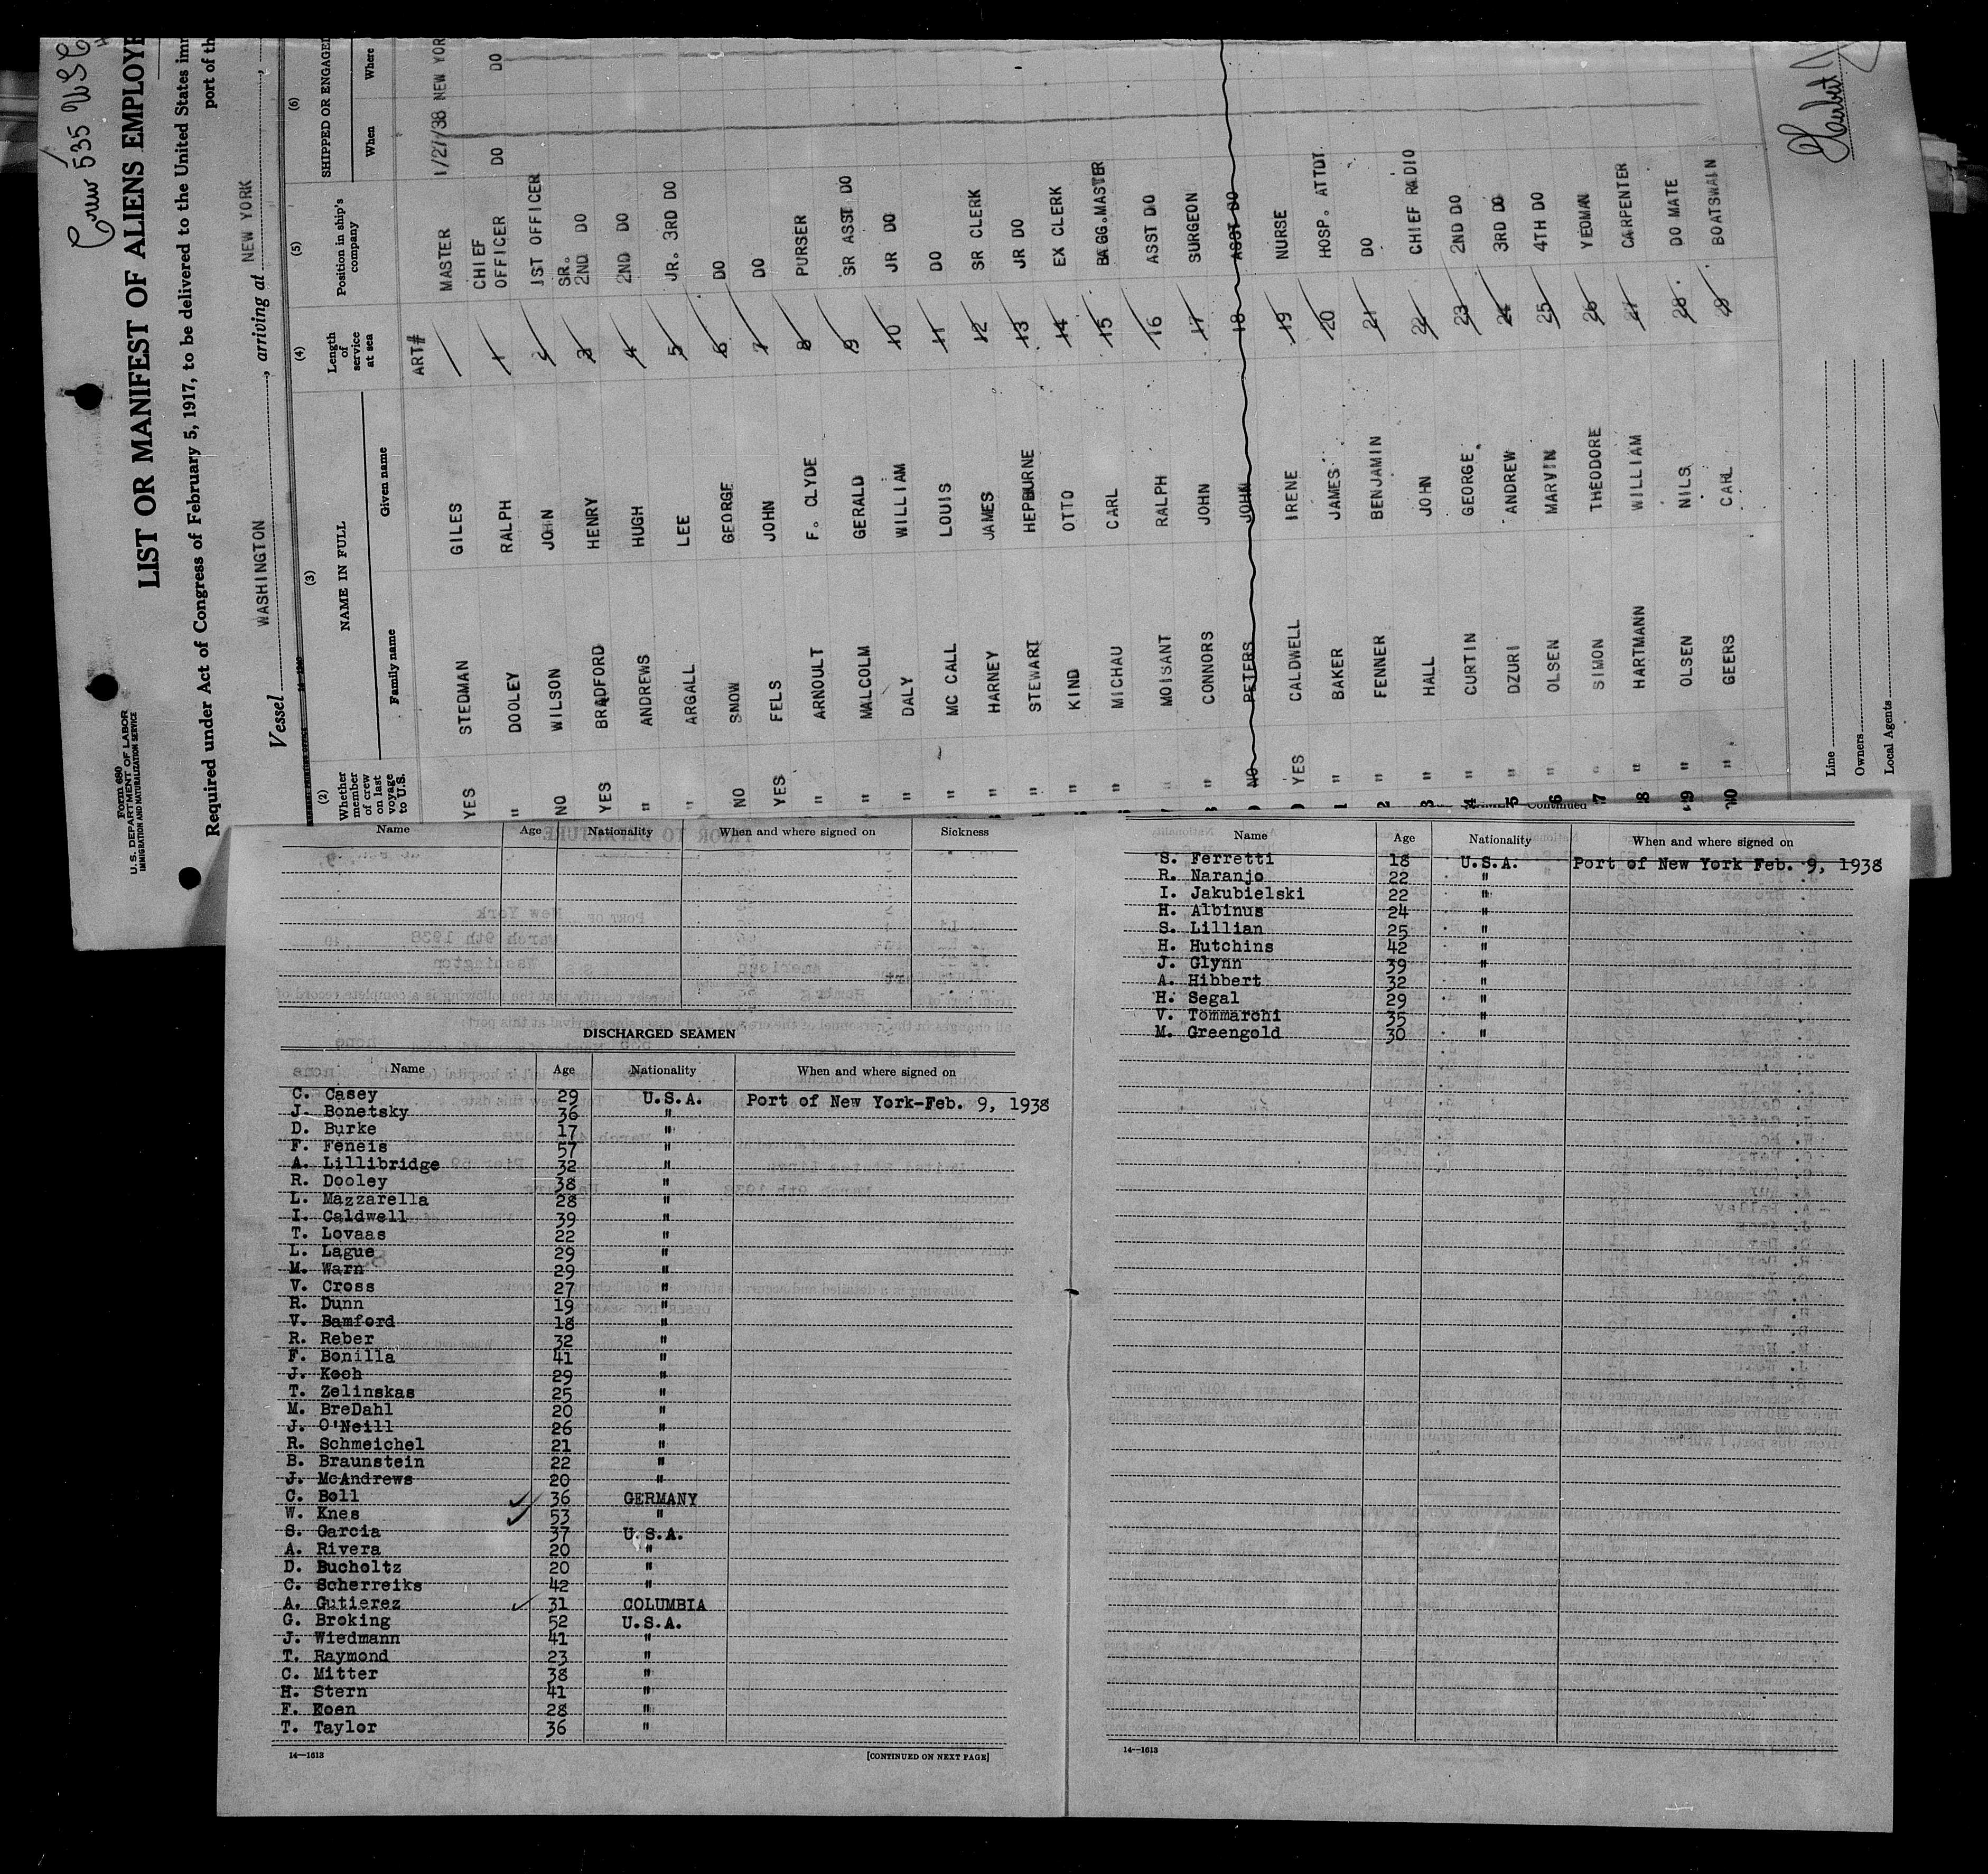 Crew 535 USC
Form 680
U.S. DEPARTMENT OF LABOR
IMMIGRATION AND NATURALIZATION SERVICE
LIST OR MANIFEST OF ALIENS EMPLOYE
Required under Act of Congress of February 5, 1917, to be delivered to the United States imm
port of th
Vessel WASHINGTON, arriving at NEW YORK,
(2) (3) (4) (5) (6)
Whether member of crew on last voyage to U.S. NAME IN FULL Length of service at sea Position in ship's company SHIPPED OR ENGAGED
Family name Given name When Where
ART# 1/27/38 NEW YOR
YES STEDMAN GILES MASTER
" DOOLEY RALPH 1 CHIEF OFFICER DO DO
NO WILSON JOHN 2 1ST OFFICER
YES BRADFORD HENRY 3 SR. 2ND DO
" ANDREWS HUGH 4 2ND DO
" ARGALL LEE 5 JR. 3RD DO
NO SNOW GEORGE 6 DO
YES FELS JOHN 7 DO
" ARNOULT F. CLYDE 8 PURSER
" MALCOLM GERALD 9 SR ASST DO
" DALY WILLIAM 10 JR DO
" MC CALL LOUIS 11 DO
" HARNEY JAMES 12 SR CLERK
" STEWART HEPBURNE 13 JR DO
" KIND OTTO 14 EX CLERK
" MICHAU CARL 15 BAGG.MASTER
" MOISANT RALPH 16 ASST DO
" CONNORS JOHN 17 SURGEON
NO PETERS JOHN 18 ASST DO
YES CALDWELL IRENE 19 NURSE
1 " BAKER JAMES 20 HOSP. ATTDT
2 " FENNER BENJAMIN 21 DO
3 " HALL JOHN 22 CHIEF RADIO
4 " CURTIN GEORGE 23 2ND DO
5 " DZURI ANDREW 24 3RD DO
6 " OLSEN MARVIN 25 4TH DO
7 " SIMON THEODORE 26 YEOMAN
8 " HARTMANN WILLIAM 27 CARPENTER
9 " OLSEN NILS 28 DO MATE
0 " GEERS CARL 29 BOATSWAIN
Line
Owners
Local Agents
Name Age Nationality When and where signed on Sickness
DISCHARGED SEAMEN
Name Age Nationality When and where signed on
C. Casey 29 U.S.A. Port of New York-Feb. 9, 1938
J. Bonetsky 36 "
D. Burke 17 "
F. Feneis 57 "
A. Lillibridge 32 "
R. Dooley 38 "
L. Mazzarella 28 "
I. Caldwell 39 "
T. Lovaas 22 "
L. Lague 29 "
M. Warn 29 "
V. Cross 27 "
R. Dunn 19 "
V. Bamford 18 "
R. Reber 32 "
F. Bonilla 41 "
J. Koch 29 "
T. Zelinskas 25 "
M. BreDahl 20 "
J. O'Neill 26 "
R. Schmeichel 21 "
B. Braunstein 22 "
J. McAndrews 20 "
C. Boll 36 GERMANY
W. Knes 53 "
S. Garcia 37 U.S.A.
A. Rivera 20 "
D. Bucholtz 20 "
C. Scherreiks 42 "
A. Gutierez 31 COLUMBIA
G. Broking 52 U.S.A.
J. Wiedmann 41 "
T. Raymond 23 "
C. Mitter 38 "
H. Stern 41 "
F. Koen 28 "
T. Taylor 36 "
14—1613 [CONTINUED ON NEXT PAGE]
Continued
Name Age Nationality When and where signed on
S. Ferretti 18 U.S.A. Port of New York Feb. 9, 1938
R. Naranjo 22 "
I. Jakubielski 22 "
H. Albinus 24 "
S. Lillian 25 "
H. Hutchins 42 "
J. Glynn 39 "
A. Hibbert 32 "
H. Segal 29 "
V. Tommarchi 35 "
M. Greengold 30 "
14—1613